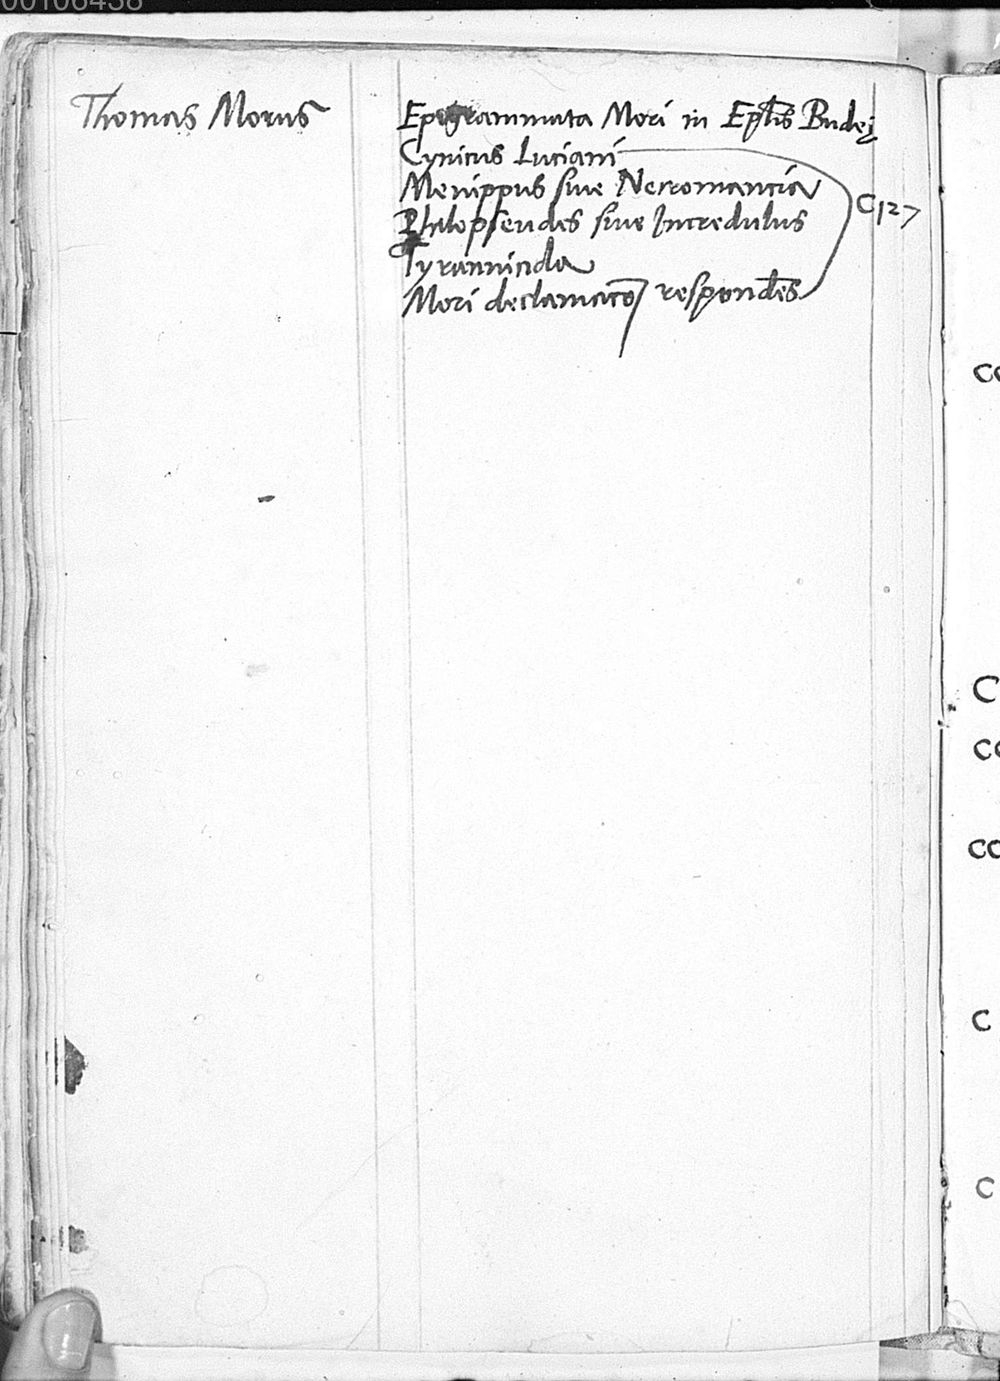 00106438
Thomas Morus
Epigrammata Mori in Eplis Budei
Cynicus Luciani
Menippus siue Necromantia
Philopseudes siue Incredulus
C127
Tyrannicida
Mori declamatio respondes
CC
C
CC
CC
C
C